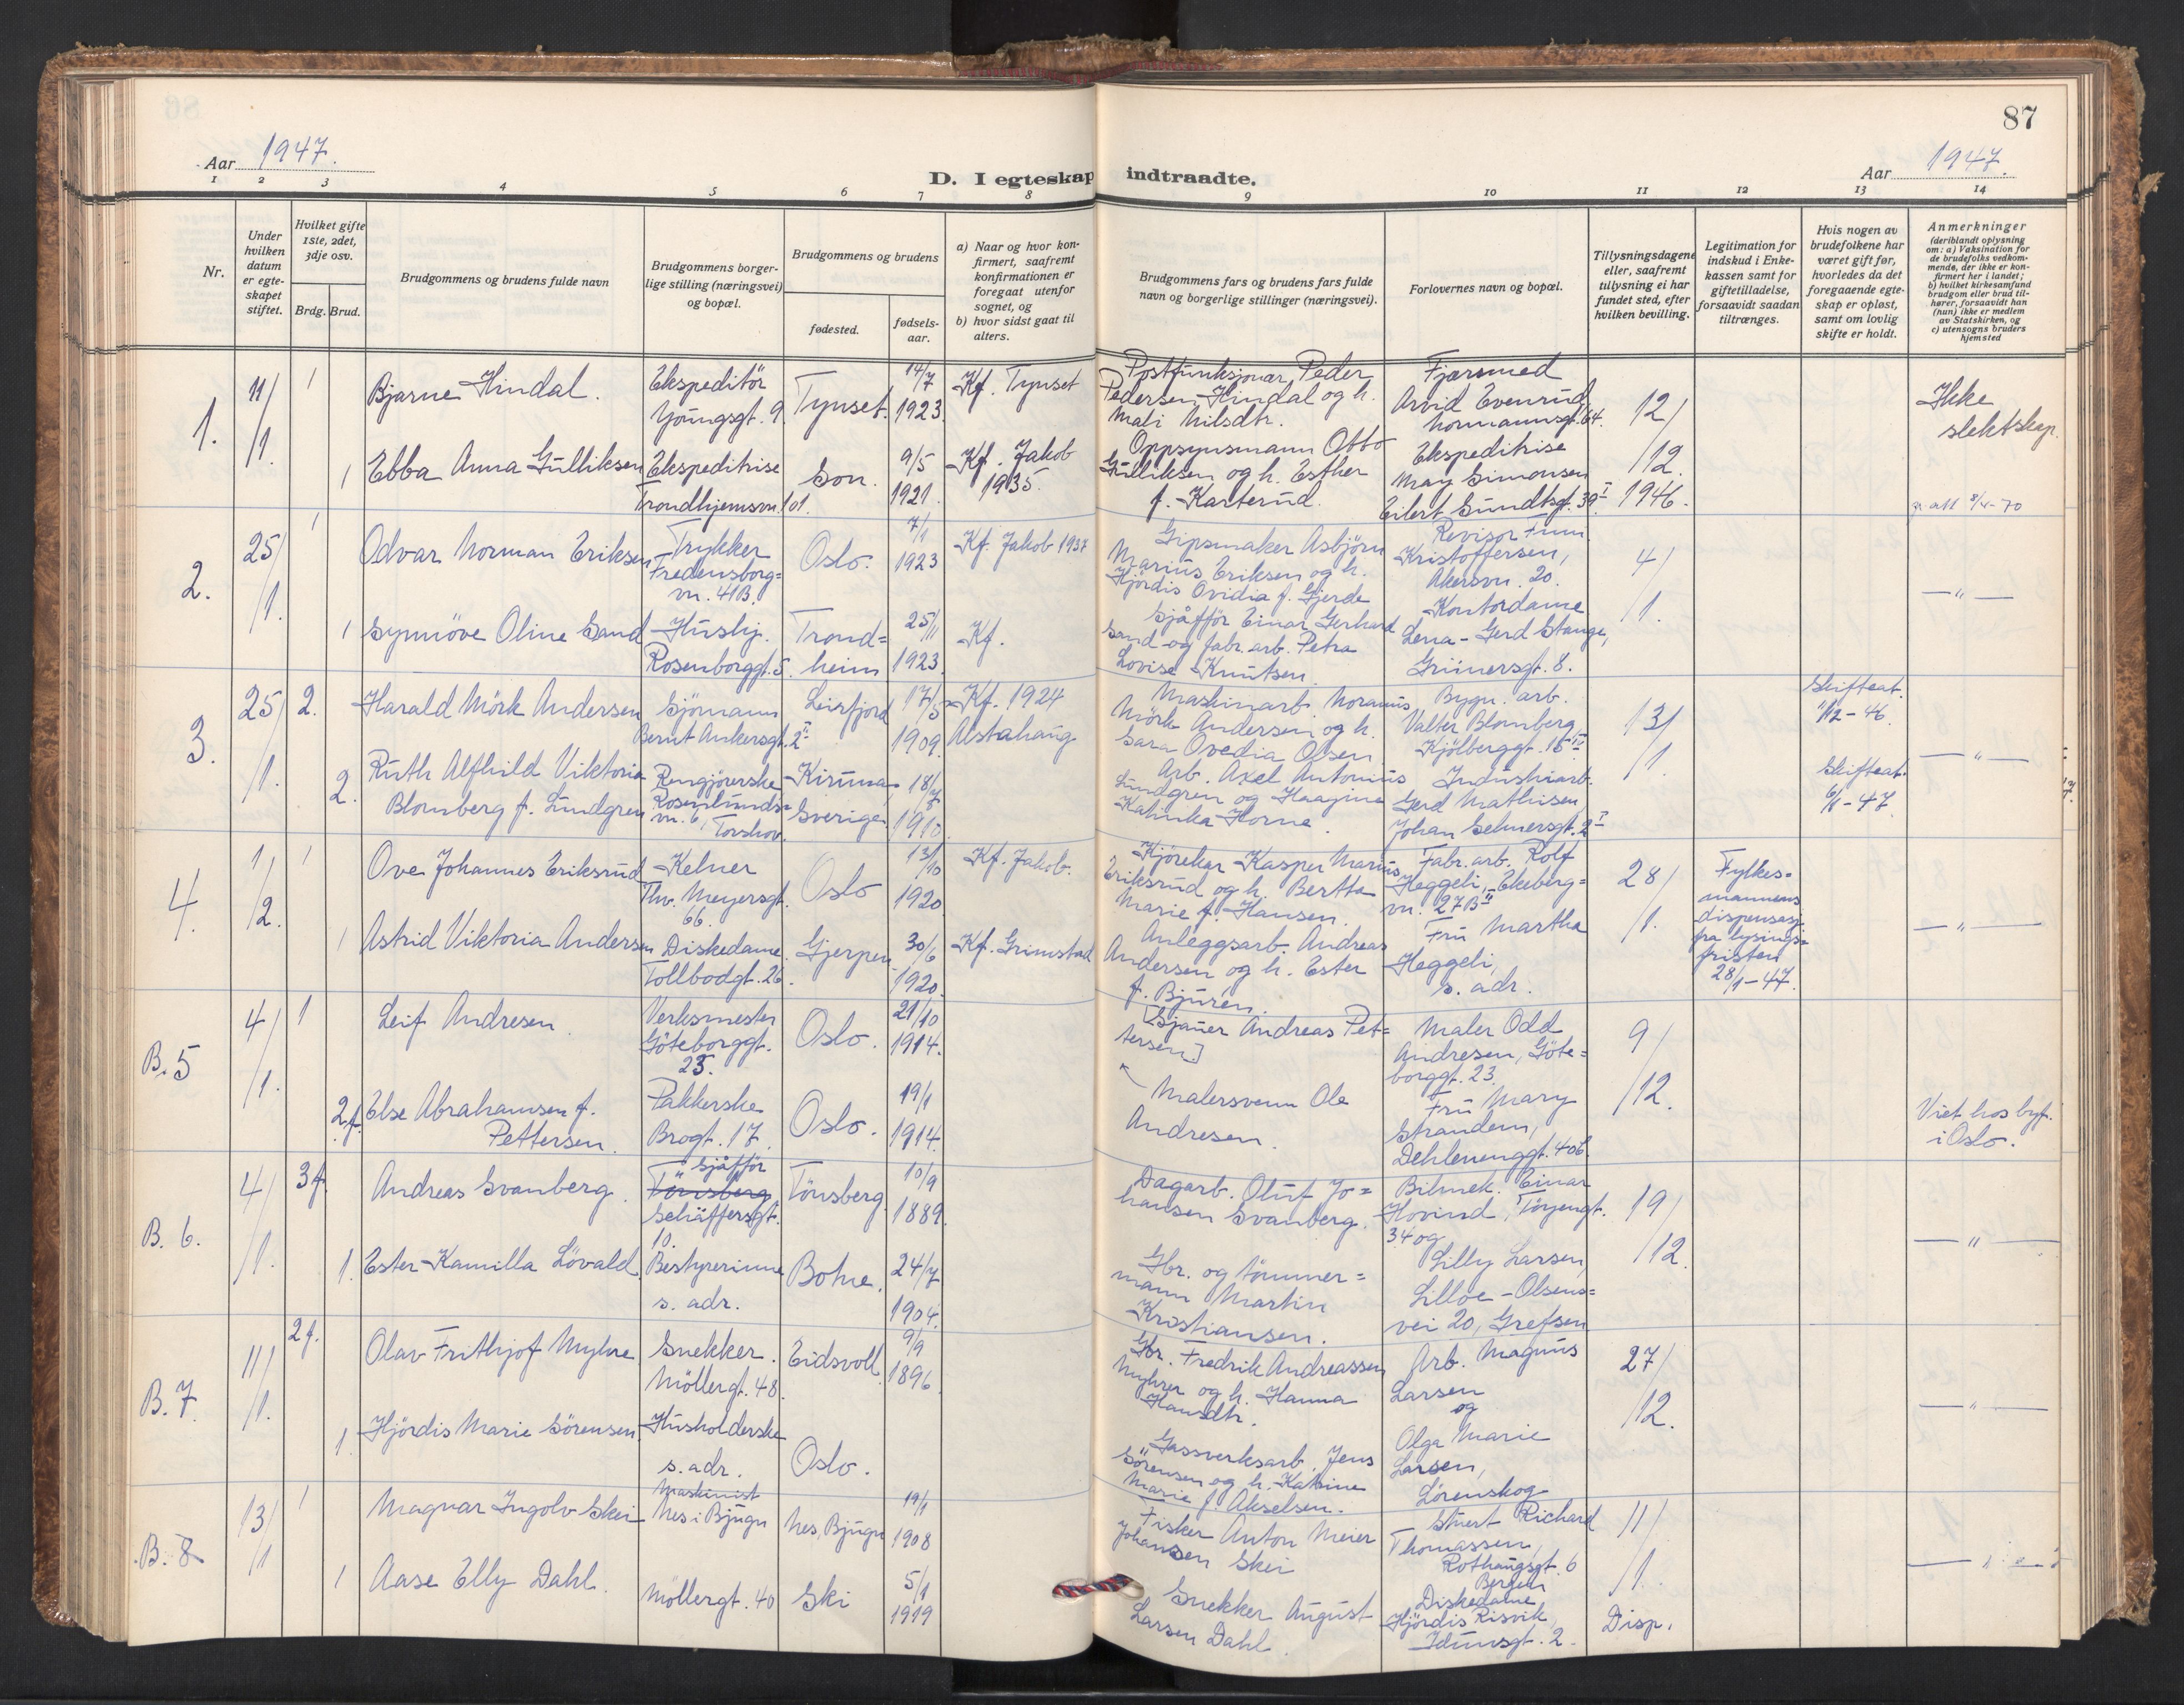 87
Aar 1947.
Aar 1947.
D. I egteskap indtraadte.
1 2 3 4 5 6 7 8 9 10 11 12 13 14
Nr.
Under hvilken datum er egteskapet stiftet.
Hvilket gifte 1ste, 2det, 3dje osv.
Brdg. Brud.
Brudgommens og brudens fulde navn
Brudgommens borgerlige stilling (næringsvei) og bopæl.
Brudgommens og brudens
fødested.
fødselsaar.
a) Naar og hvor konfirmert, saafremt konfirmationen er foregaat utenfor sognet, og
b) hvor sidst gaat til alters.
Brudgommens fars og brudens fars fulde navn og borgerlige stillinger (næringsvei).
Forlovernes navn og bopæl.
Tillysningsdagene eller, saafremt tillysning ei har fundet sted, efter hvilken bevilling.
Legitimation for indskud i Enkekassen samt for giftetilladelse, forsaavidt saadan tiltrænges.
Hvis nogen av brudefolkene har været gift før, hvorledes da det foregaaende egteskap er opløst, samt om lovlig skifte er holdt.
Anmerkninger
(deriblandt oplysning om: a) Vaksination for de brudefolks vedkommende, der ikke er konfirmert her i landet; b) hvilket kirkesamfund brudgom eller brud tilhører, forsaavidt han (hun) ikke er medlem av Statskirken, og c) utensogns bruders hjemsted
1.
11/1.
1
Bjarne Hindal.
Ekspeditör
Youngsgt. 9.
Tynset.
14/7
1923
Kf. Tynset
Postfunksjonær Peder
Pedersen Hindal og h.
Mali Nilsdtr.
Fjærsmed
Arvid Evenrud,
Normannsgt. 64.
12/12.
1946.
Ikke
slektskap.
1
Ebba Anna Gulliksen
Ekspeditrise
Trondhjemsvn. 101.
Son.
9/5
1921.
Kf. Jakob
1935.
Oppsynsmann Otto
Gulliksen og h. Esther
f. Karterud.
Ekspeditrise
May Simonsen
Eilert Sundtsgt. 39 I
2.
25/1.
1
Odvar Norman Eriksen
Trykker
Fredensborg=
vn. 41B.
Oslo.
7/1
1923
Kf. Jakob 1937
Gipsmaker Asbjörn
Marius Eriksen og h.
Hjördis Ovidia f. Gjerde
Revisor Finn
Kristoffersen,
Akersvn. 20.
4/1.
— " —
1
Synnöve Oline Sand
Hushj.
Rosenborggt. 5.
Trond=
heim
25/11
1923
Kf.
Sjåfför Einar Gerhard
Sand og fabr. arb. Petra
Lovise Knutsen.
Kontordame
Lena-Gerd Stange,
Grünersgt. 8.
3.
25/1.
2.
Harald Mörk Andersen
Sjömann
Bernt Ankersgt. 2 II
Leirfjord
17/5
1909.
Kf. 1924
Alstahaug
Mörk Andersen og h.
Sara Ovedia Olsen
Bygn. arb.
Valter Blomberg
Kjölberggt. 15 IV
13/1.
Skifteat.
11/12-46.
— " —
2.
Ruth Alfhild Viktoria
Blomberg f. Lundgren
Rengjörerske
Rosenlunds=
vn. 6, Torshov.
Kiruna,
Sverige
18/7
1910.
Arb. Axel Antonius
Lundgren og Haagine
Kalinka Horne.
Industriarb.
Gerd Mathisen,
Johan Selmersgt. 2 I
Skifteat.
6/1-47.
4.
1/2.
1
Ove Johannes Eriksrud
Kelner
Thv. Meyersgt.
66.
Oslo
13/10
1920
Kf. Jakob.
Kjörekar Kasper Marius
Eriksrud og h. Bertha
Marie f. Hansen.
Fabr. arb. Rolf
Heggeli, Ekeberg=
vn. 27B II
28/1.
Fylkes=
mannens
dispensasj.
fra lysings=
fristen
28/1-47.
— " —
1
Astrid Viktoria Andersen
Diskedame
Tollbodgt. 26.
Gjerpen
30/6
1920.
Kf. Grimstad
Anleggsarb. Andreas
Andersen og h. Ester
f. Bjurén.
Fru Martha
Heggeli,
s. adr.
B. 5
4/1.
1
Leif Andresen.
Verksmester
Göteborggt.
23.
Oslo.
21/10
1914.
[Sjauer Andreas Pet=
tersen]
Maler Odd
Andresen, Göte=
borggt. 23.
9/12.
2.f.
Else Abrahamsen f.
Pettersen.
Pakkerske
Brogt. 17
Oslo.
19/1
1914.
Malersvenn Ole
Andresen.
Fru Mary
Strandem,
Dehlenenggt. 40b.
Viet hos byf.
i Oslo.
B. 6.
4/1.
3 f.
Andreas Svanberg.
Sjåfför
Tönsberg
Schäffersgt.
10.
Tönsberg
10/9
1889.
Dagarb. Oluf Jo=
hansen Svanberg.
Bilmek. Einar
Hovind, Töyengt.
34 og
19/12.
— " —
1.
Ester Kamilla Lövald
Bestyrerinne
s. adr.
Botne.
24/7
1904.
Gbr. og tömmer=
mann Martin
Kristiansen.
Lilly Larsen,
Lilloe-Olsens=
vei 20, Grefsen
B. 7.
11/1.
2 f.
Olav Frithjof Myhre
Snekker.
Möllergt. 48.
Eidsvoll
9/9
1896.
Gbr. Fredrik Andreassen
Myhrer og h. Hanna
Hansdtr.
Arb. Magnus
Larsen
og
27/12.
— " —
1.
Hjördis Marie Sörensen.
Husholderske
s. adr.
Oslo.
Gassverksarb. Jens
Sörensen og h. Katrine
Marie f. Akselsen.
Olga Marie
Larsen,
Lörenskog
B. 8
13/1
1
Magnar Ingolv Skei
Maskinist
Nes i Bjugn
Nes, Bjugn
19/1
1908
Fisker Anton Meier
Johansen Skei
Stuert Richard
Thomassen,
Rothaugsgt. 6
Bergen
11/1.
Disp.
— " —
1
Aase Elly Dahl.
Möllergt. 40
Ski
5/1
1919
Snekker August
Larsen Dahl
Diskedame
Hjördis Risvik,
Idunsgt. 2.